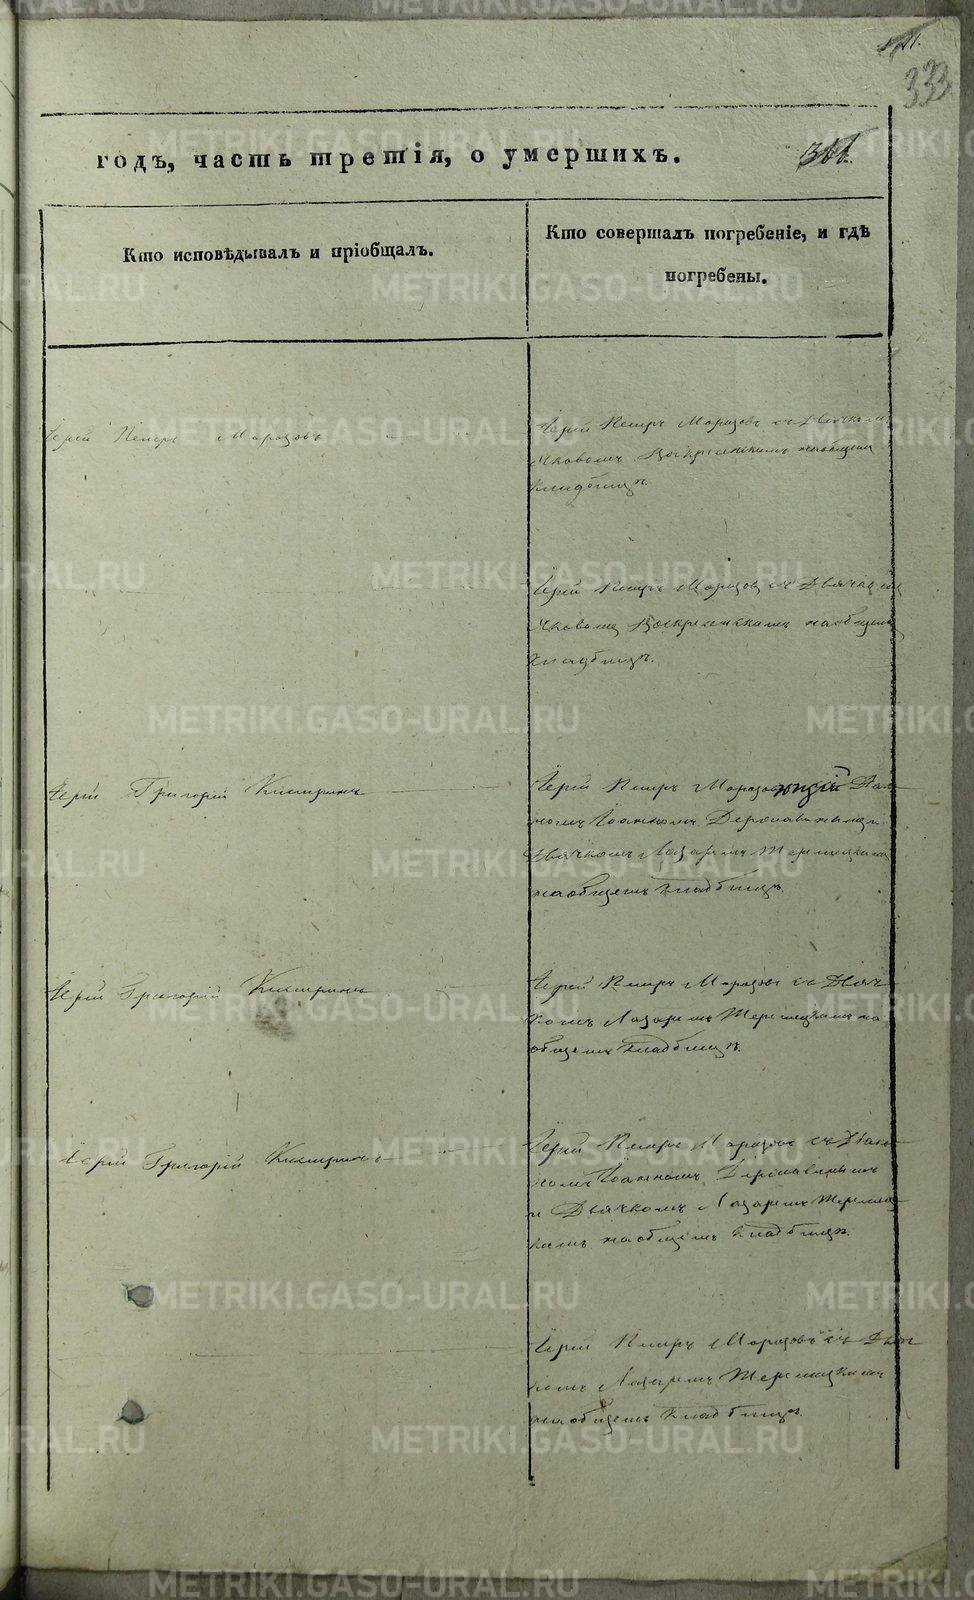 333
годъ, часть третія, о умершихъ.
Кто исповѣдывалъ и пріобщалъ.
Кто совершалъ погребеніе, и гдѣ
погребены.
Іерей Петръ Морозовъ
Іерей Петръ Морозовъ съ Дьячкомъ
Яковомъ Воскресенскимъ на общемъ
кладбищѣ.
Іерей Петръ Морозовъ съ Дьячкомъ
Яковомъ Воскресенскимъ на общемъ
кладбищѣ.
Іерей Григорій
Іерей Петръ Морозовъ Діако
номъ Іоанномъ
Дьячкомъ Лазаремъ
на общемъ кладбищѣ.
Іерей Григорій
Іерей Петръ Морозовъ съ Дьяч
комъ Лазаремъ на
общемъ кладбищѣ.
Іерей Григорій
Іерей Петръ Морозовъ съ Діако
номъ Іоанномъ
и Дьячкомъ Лазаремъ
на общемъ кладбищѣ.
Іерей Петръ Морозовъ съ Дьяч
комъ Лазаремъ
на общемъ кладбищѣ.
METRIKI.GASO-URAL.RU